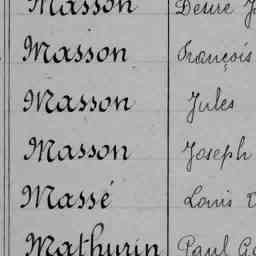 Masson Désiré
Masson François
Masson Jules
Masson Joseph
Massé Louis
Mathurin Paul